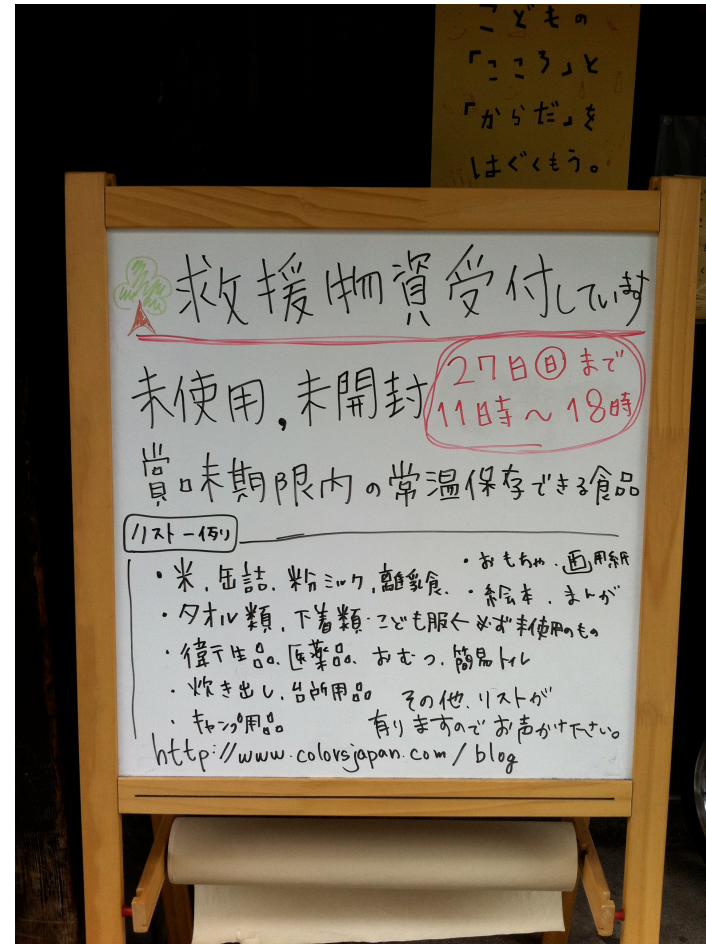 こどもの
「こころ」と
「からだ」を
はぐくもう。
救援物資受付しています
未使用,未開封
27日㊐まで
11時～18時
賞味期限内の常温保存できる食品
リスト一例
・米、缶詰、粉ミルク、離乳食、
・おもちゃ、画用紙
・絵本、まんが
・タオル類、下着類・こども服←必ず未使用のもの
・衛生品、医薬品、おむつ、簡易トイレ
・炊き出し、台所用品
・キャンプ用品
その他、リストが
有りますのでお声かけ下さい。
http://www.colorsjapan.com/blog